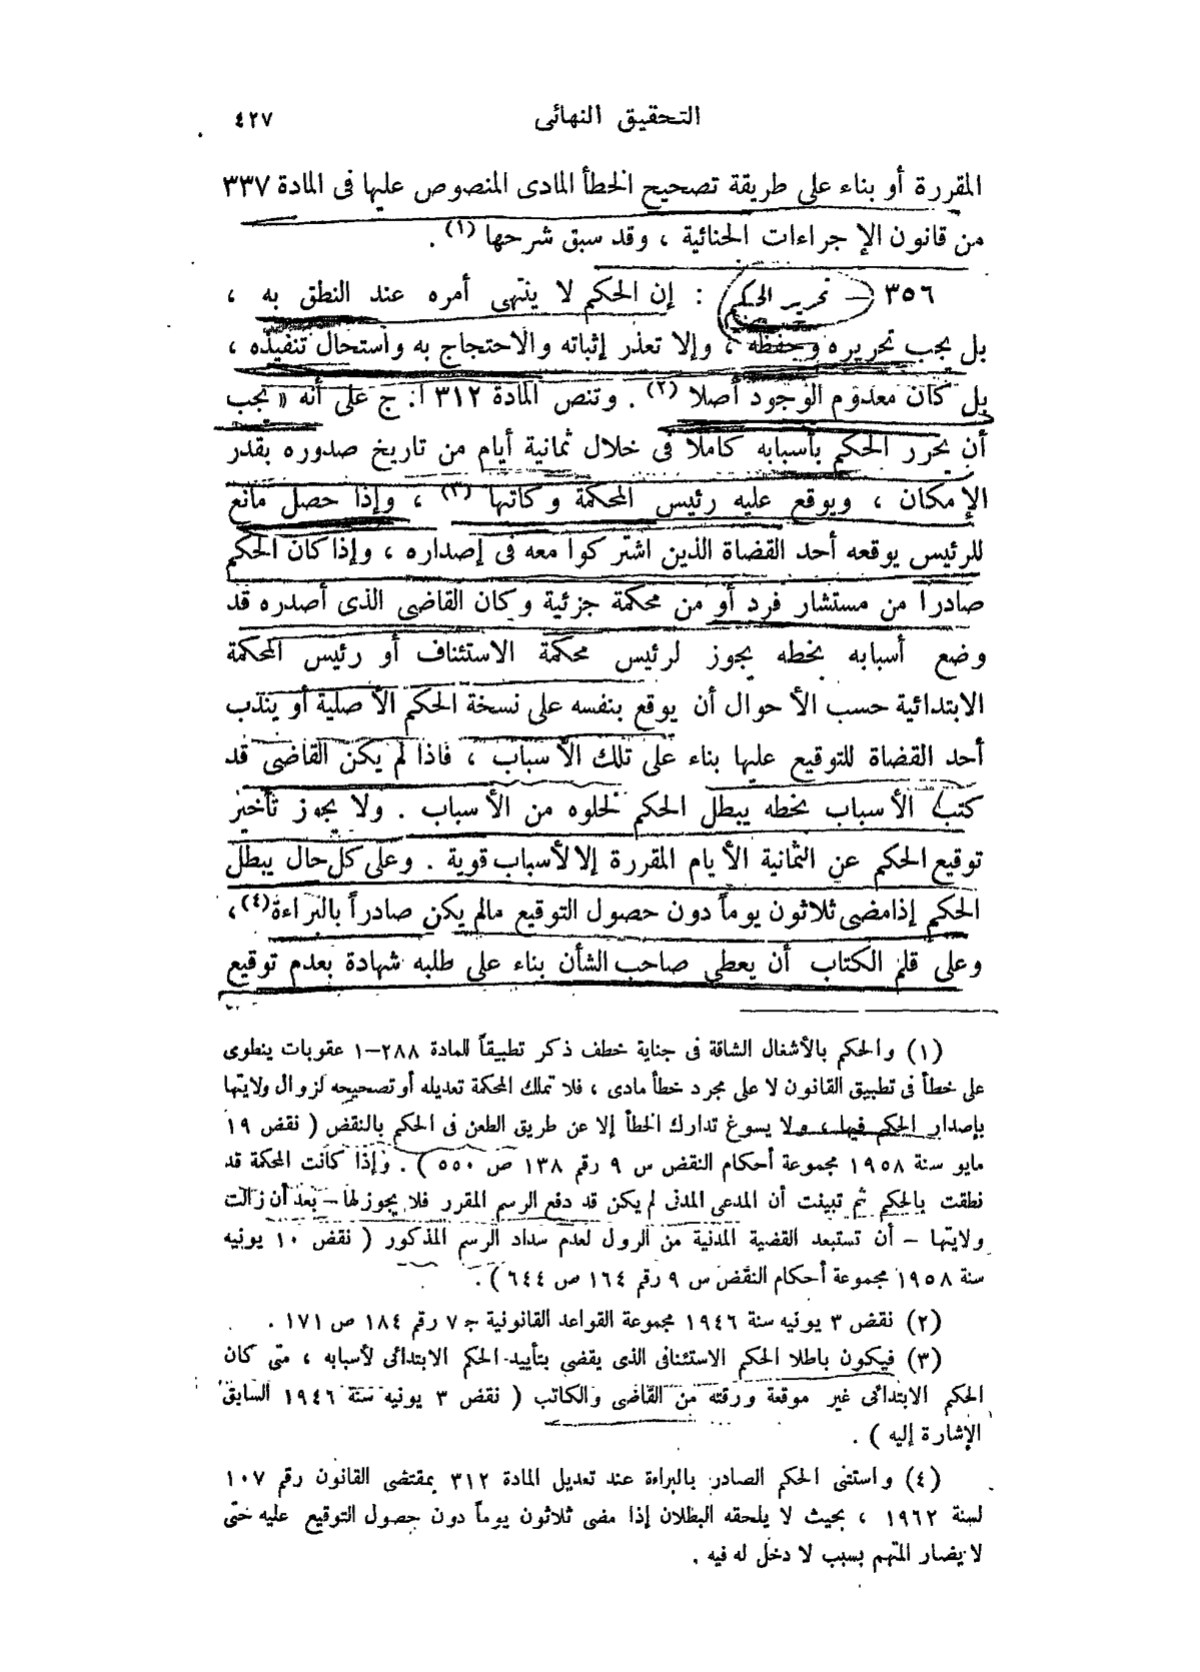 التحقيق النهائى ٤٢٧
المقررة أو بناء على طريقة تصحيح الخطأ المادى المنصوص عليها فى المادة ٣٣٧
من قانون الإجراءات الجنائية ، وقد سبق شرحها (١) .
٣٥٦ – تحرير الحكم : إن الحكم لا ينتهى أمره عند النطق به ،
بل يجب تحريره وحفظه ، وإلا تعذر إثباته والاحتجاج به واستحال تنفيذه ،
بل كان معدوم الوجود أصلا (٢) . وتنص المادة ٣١٢ ا. ج على أنه « يجب
أن يحرر الحكم بأسبابه كاملا فى خلال ثمانية أيام من تاريخ صدوره بقدر
الإمكان ، ويوقع عليه رئيس المحكمة وكاتبها (٣) ، وإذا حصل مانع
للرئيس يوقعه أحد القضاة الذين اشتركوا معه فى إصداره ، وإذا كان الحكم
صادرا من مستشار فرد أو من محكمة جزئية وكان القاضى الذى أصدره قد
وضع أسبابه بخطه يجوز لرئيس محكمة الاستئناف أو رئيس المحكمة
الابتدائية حسب الأحوال أن يوقع بنفسه على نسخة الحكم الأصلية أو يندب
أحد القضاة للتوقيع عليها بناء على تلك الأسباب ، فاذا لم يكن القاضى قد
كتب الأسباب بخطه يبطل الحكم لخلوه من الأسباب . ولا يجوز تأخير
توقيع الحكم عن الثمانية الأيام المقررة إلا لأسباب قوية . وعلى كل حال يبطل
الحكم إذا مضى ثلاثون يوماً دون حصول التوقيع مالم يكن صادراً بالبراءة (٤) ،
وعلى قلم الكتاب أن يعطى صاحب الشأن بناء على طلبه شهادة بعدم توقيع
(١) والحكم بالأشغال الشاقة فى جناية خطف ذكر تطبيقاً للمادة ٢٨٨–١ عقوبات ينطوى
على خطأ فى تطبيق القانون لا على مجرد خطأ مادى ، فلا تملك المحكمة تعديله أو تصحيحه لزوال ولايتها
بإصدار الحكم فيها ، ولا يسوغ تدارك الخطأ إلا عن طريق الطعن فى الحكم بالنقض ( نقض ١٩
مايو سنة ١٩٥٨ مجموعة أحكام النقض س ٩ رقم ١٣٨ ص ٥٥٠ ) . وإذا كانت المحكمة قد
نطقت بالحكم ثم تبينت أن المدعى المدنى لم يكن قد دفع الرسم المقرر فلا يجوز لها – بعد أن زالت
ولايتها – أن تستبعد القضية المدنية من الرول لعدم سداد الرسم المذكور ( نقض ١٠ يونيه
سنة ١٩٥٨ مجموعة أحكام النقض س ٩ رقم ١٦٤ ص ٦٤٤ ) .
(٢) نقض ٣ يونيه سنة ١٩٤٦ مجموعة القواعد القانونية ج ٧ رقم ١٨٤ ص ١٧١ .
(٣) فيكون باطلا الحكم الاستئنافى الذى يقضى بتأييد الحكم الابتدائى لأسبابه ، متى كان
الحكم الابتدائى غير موقعة ورقته من القاضى والكاتب ( نقض ٣ يونيه سنة ١٩٤٦ السابق
الإشارة إليه ) .
(٤) واستثنى الحكم الصادر بالبراءة عند تعديل المادة ٣١٢ بمقتضى القانون رقم ١٠٧
لسنة ١٩٦٢ ، بحيث لا يلحقه البطلان إذا مضى ثلاثون يوماً دون حصول التوقيع عليه حتى
لا يضار المتهم بسبب لا دخل له فيه .